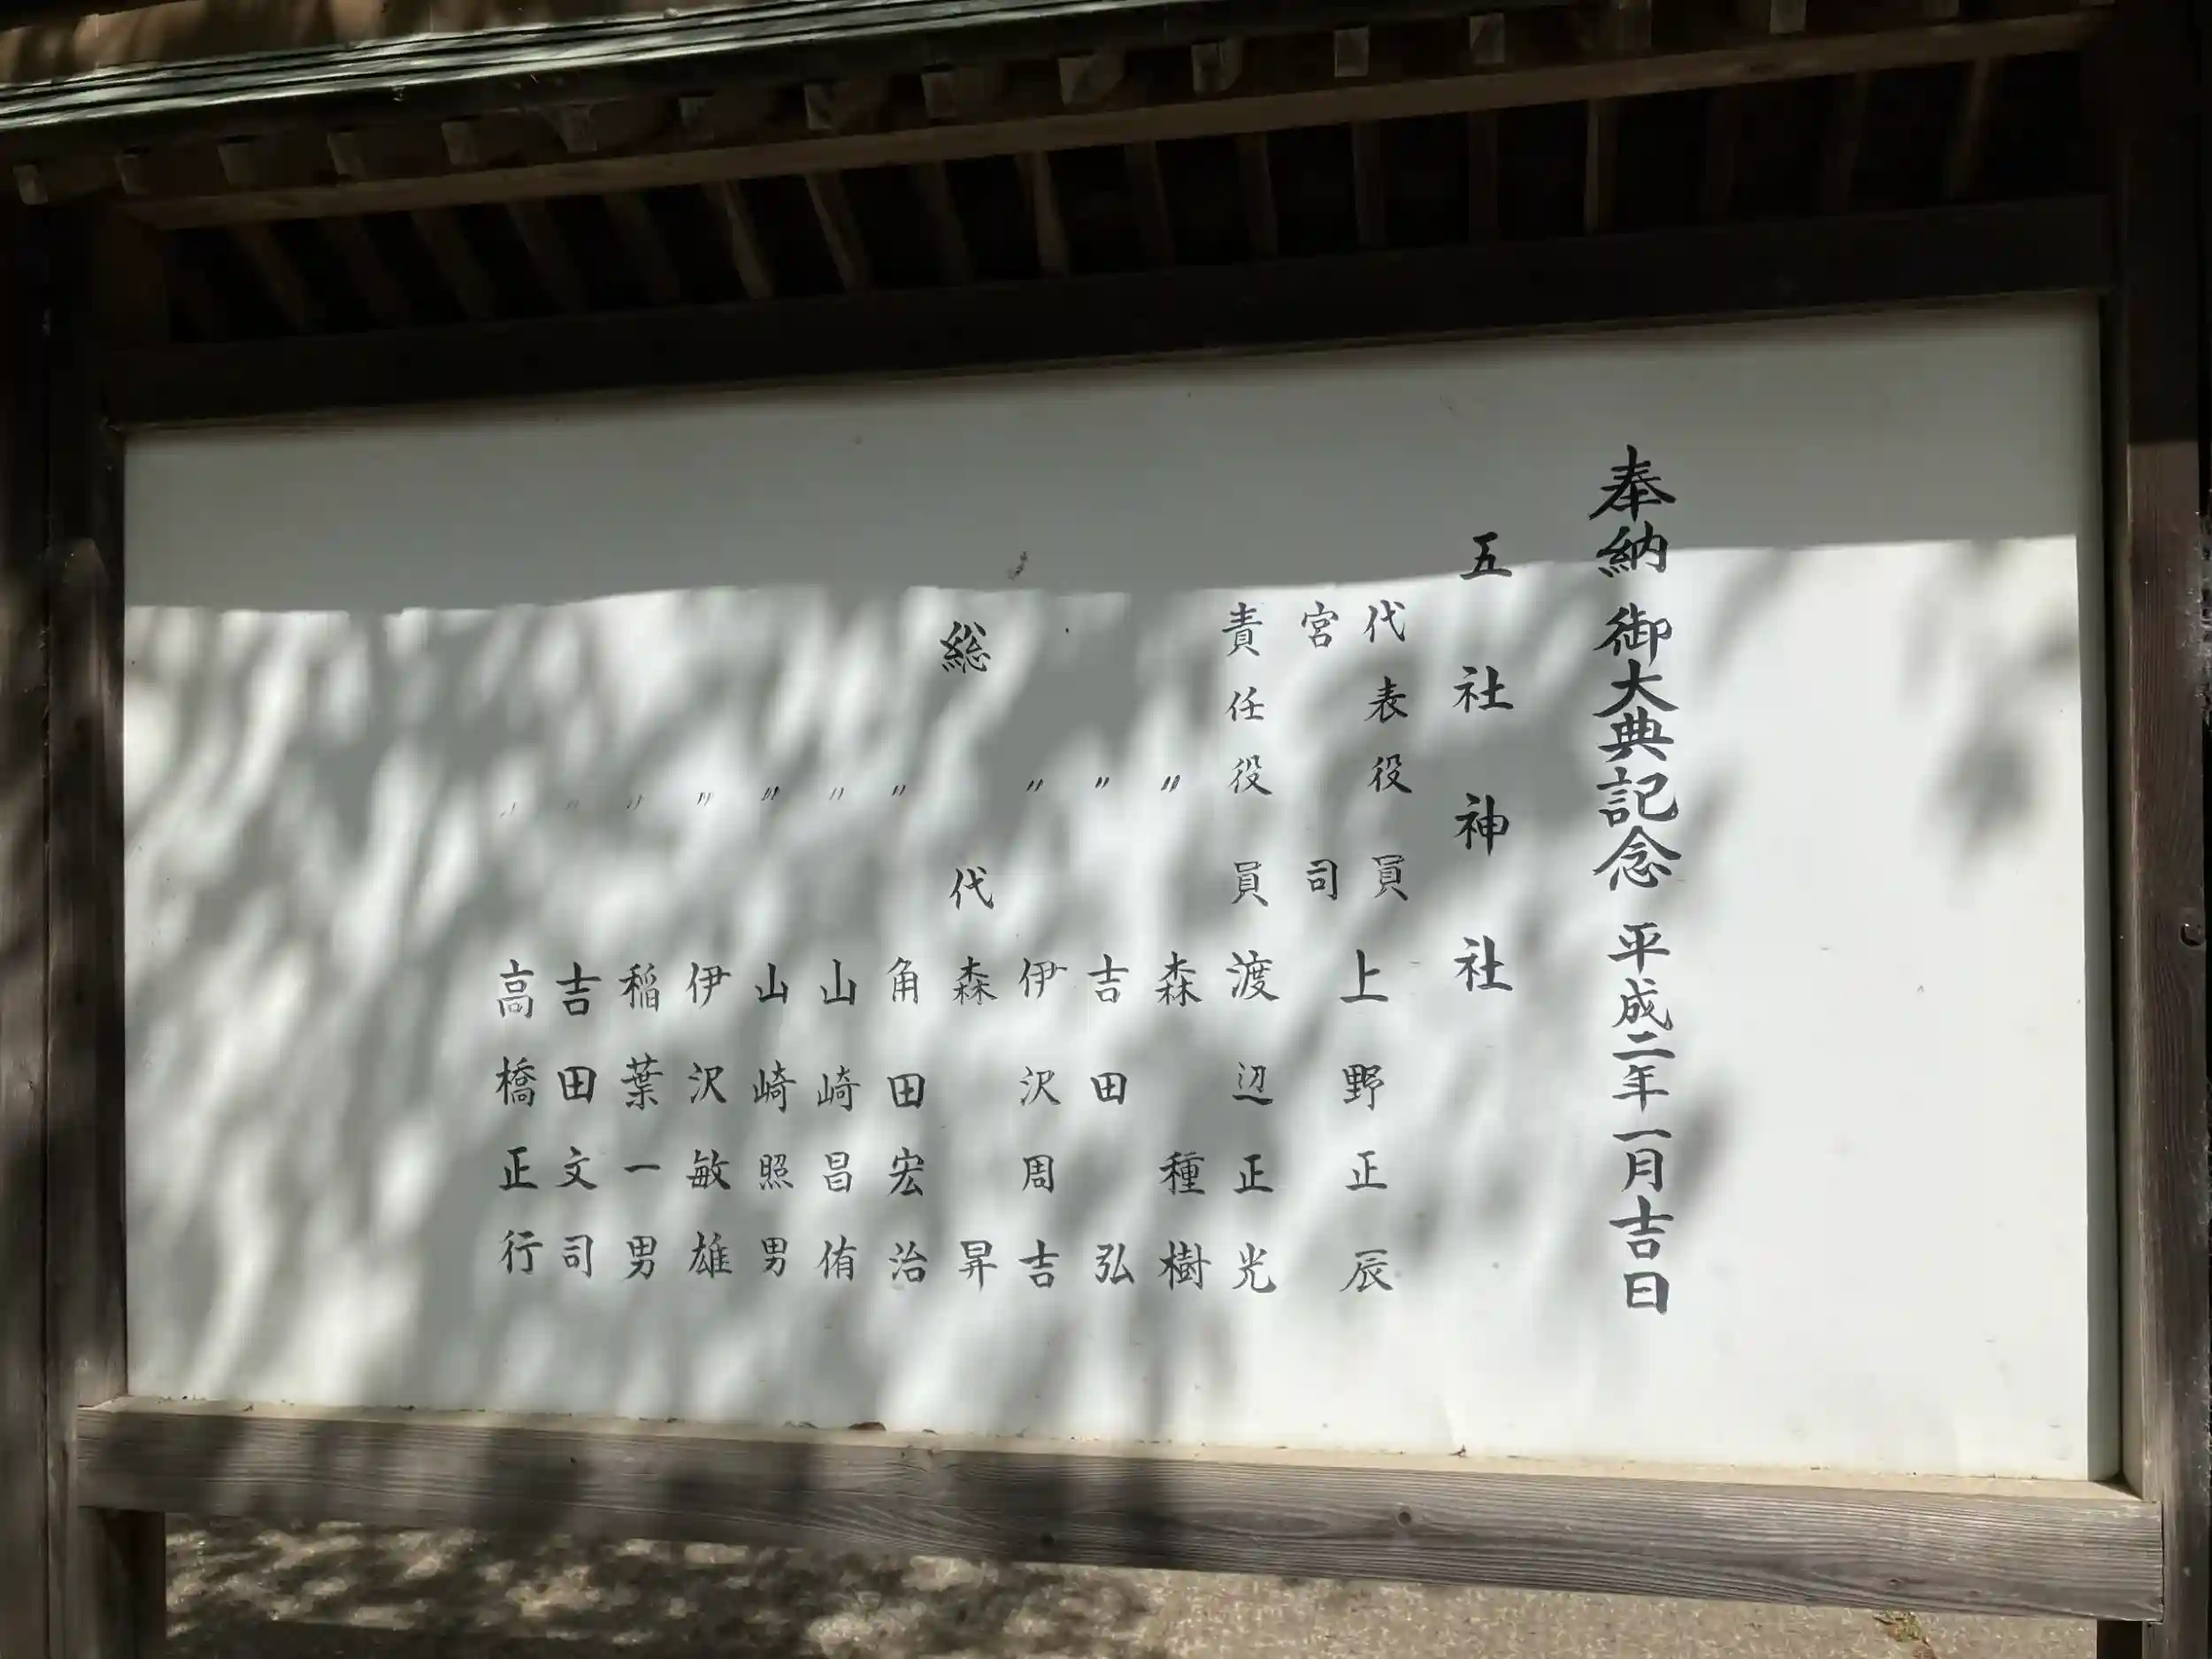 奉納 御大典記念 平成二年一月吉日
五社神社
代表役員
宮司
上野正辰
責任役員 渡辺正光
〃 森種樹
〃 吉田弘
〃 伊沢周吉
総代 森昇
〃 角田宏治
〃 山崎昌侑
〃 山崎照男
〃 伊沢敏雄
〃 稲葉一男
〃 吉田文司
〃 高橋正行